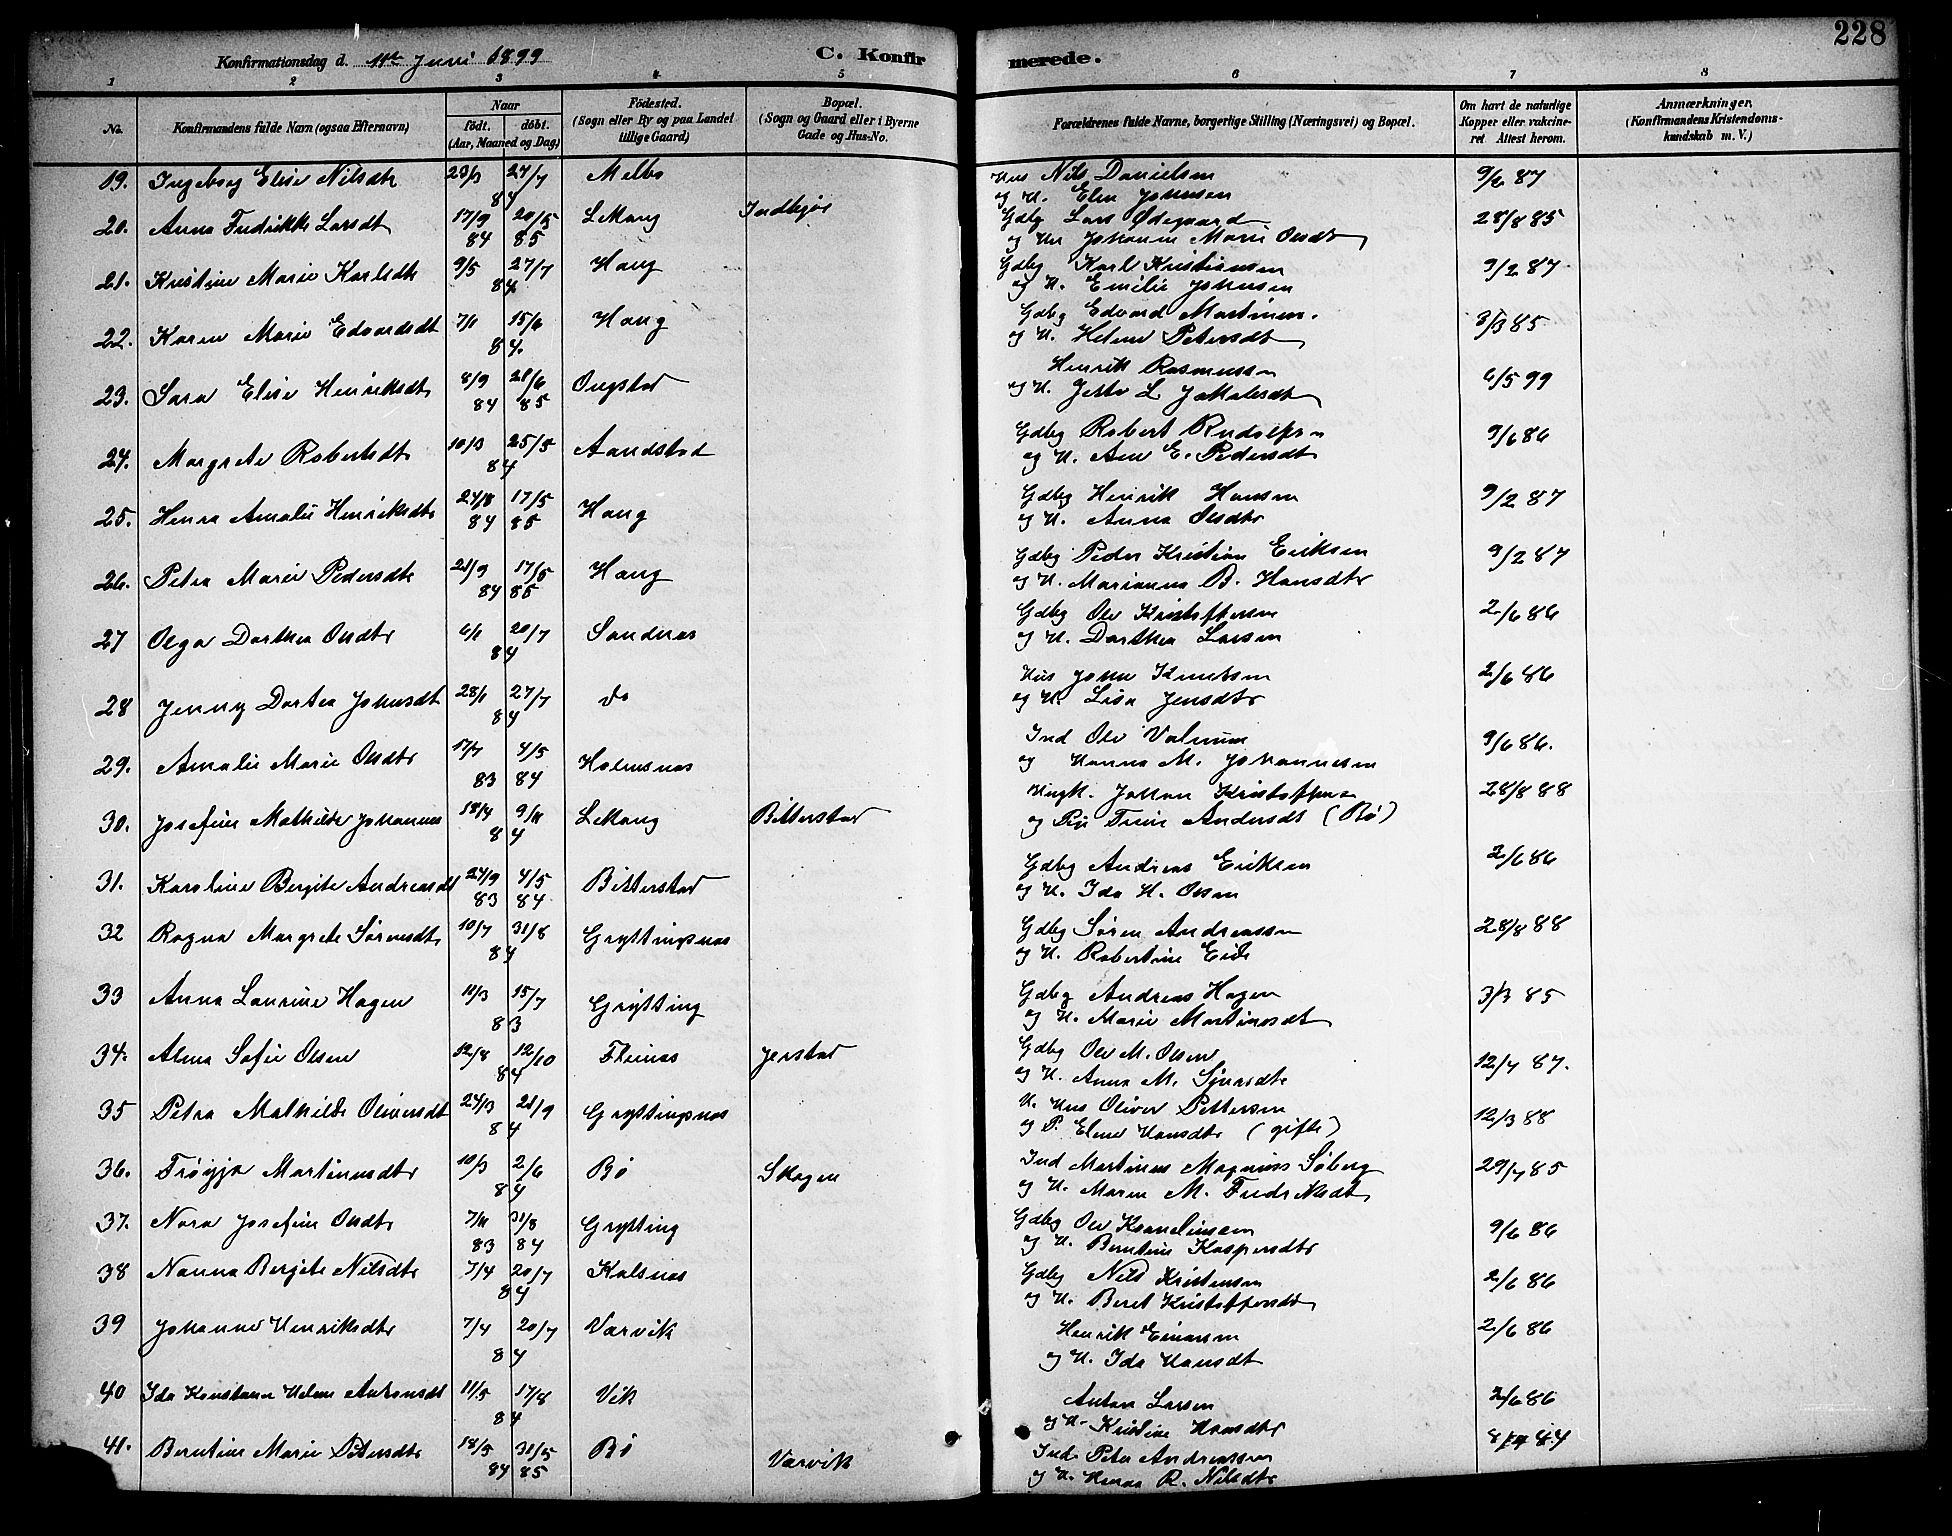 228
Konfirmationsdag d. 11te Juni 1899 C. Konfirmerede.
1 2 3 4 5 6 7 8
No. Konfirmandens fulde Navn (ogsaa Efternavn) Naar födt. döbt. (Aar, Maaned og Dag) Födested. (Sogn eller By og paa Landet tillige Gaard) Bopæl. (Sogn og Gaard eller i Byerne Gade og Hus-No. Forældrenes fulde Navne, borgerlige Stilling (Næringsvei) og Bopæl. Om havt de naturlige Kopper eller vakcineret Attest herom. Anmærkninger. (Konfirmandens Kristendomskundskab m. V.)
19. Ingeborg Elise Nilsdtr 23/3 27/7 Melbo Hus Nils Danielsen 9/6 87
84 og H. Elen Johnsen
20. Anna Fredrikke Larsdt 17/9 20/5 LMang Indbejös Gdbg Lars Ødegaard 28/8 85
84 85 og Hu Johanna Marie Olsdtr
21. Kristine Marie Karlsdtr 9/5 27/7 Haug Gdbg Karl Kristiansen 9/2 87
84 og H. Emilie Johnsen
22. Karen Marie Edvardsdt 7/1 15/6 Haug Gdbg Edvard Martinsen. 3/3 85
84. og H. Helene Petersdtr
23. Sara Elise Henriksdt 8/9 21/6 Ongstad Henrik Rasmussen 6/5 99
84 85 og H. Jette L. Jakobsdt
24. Margrete Robertsdt 10/3 25/5 Aandstad Gdbg Robert Rudolfsen 9/6 86
84 og H. Ane E. Pedersdtr
25. Henra Amalie Henriksdtr 24/18 17/5 Haug Gdbg Henrik Hansen 9/2 87
84 85 og H. Anna Olsdtr
26. Petra Marie Pedersdtr 21/9 17/5 Haug Gdbg Peder Kristian Eriksen 9/2 87
84 85 og H. Marianna B. Hansdtr
27 Olga Dorthea Olsdtr 6/1 20/7 Sandnes Gdbg Ole Kristoffersen 2/6 86
84 og H. Dorthea Larsen
28 Jenny Dortea Johnsdt 28/1 27/7 do Hus John Knutsen 2/6 86
84 og H. Lisa Jensdtr
29. Amalie Marie Olsdtr 17/7 4/5 Holmsnes Ind Ole 9/6 86.
83 84 og Hanna M. Johannesen
30. Josefine Mathilde Johannes 18/4 9/11 LMang Bitterstad Ungk. Johan Kristoffersen 28/8 88
84 og Pi Trine Andersdt (Bø)
31. Karoline Bergite Andreasdt 24/9 4/5 Bitterstad Gdbg Andreas Eriksen 2/6 86
83 84 og H. Ida H. Olsen
32 Ragna Margrete Sørensdtr 10/7 31/8 Gryttingsnes Gdbg Søren Andreassen 28/8 88
84 og H. Robertine Eide
33 Anna Laurine Hagen 11/3 15/7 Grytting Gdbg Andreas Hagen 3/3 85
83 og H. Marie Martinsdt
34. Alma Sofie Olsen 12/8 12/10 Fleines Jerstad Gdbg Ole M. Olsen 12/7 87.
84 og H. Anna M. Sjursdtr
35 Petra Mathilde Oliversdt 24/3 21/9 Gryttingsnes U. Hus Oliver Pettersen 12/3 88
84 og P. Eline Hansdtr (gifte)
36. Trøyja Martinusdtr 10/3 2/6 Bø Skagen Ind Martinus Magnus Søberg 29/7 85
84 og H. Maren M. Fredriksdt
37. Nora Josefine Olsdtr 7/11 31/8 Grytting Gdbg Ole Kornelinsen 9/6 86
83 84 og H. Berntine Kaspersdtr
38 Nanna Bergite Nilsdtr 7/4 20/7 Kalsnes Gdbg Nils Kristensen 2/6 86
84 og H. Beret Kristoffersdtr
39 Johanna Henriksdtr 7/4 20/7 Varvik Henrik Einarsen 2/6 86
84 og H. Ida Hansdt
40 Ida Konstanse Helene Antonsdt 11/5 17/8 Vik Anton Larsen 2/6 86
84 og H. Kristine Hansdtr
41. Berntine Marie Petersdtr 18/5 31/5 Bø Varvik Ind. Peter Andreassen 84
84 85 og H. Hanna R. Nilsdtr